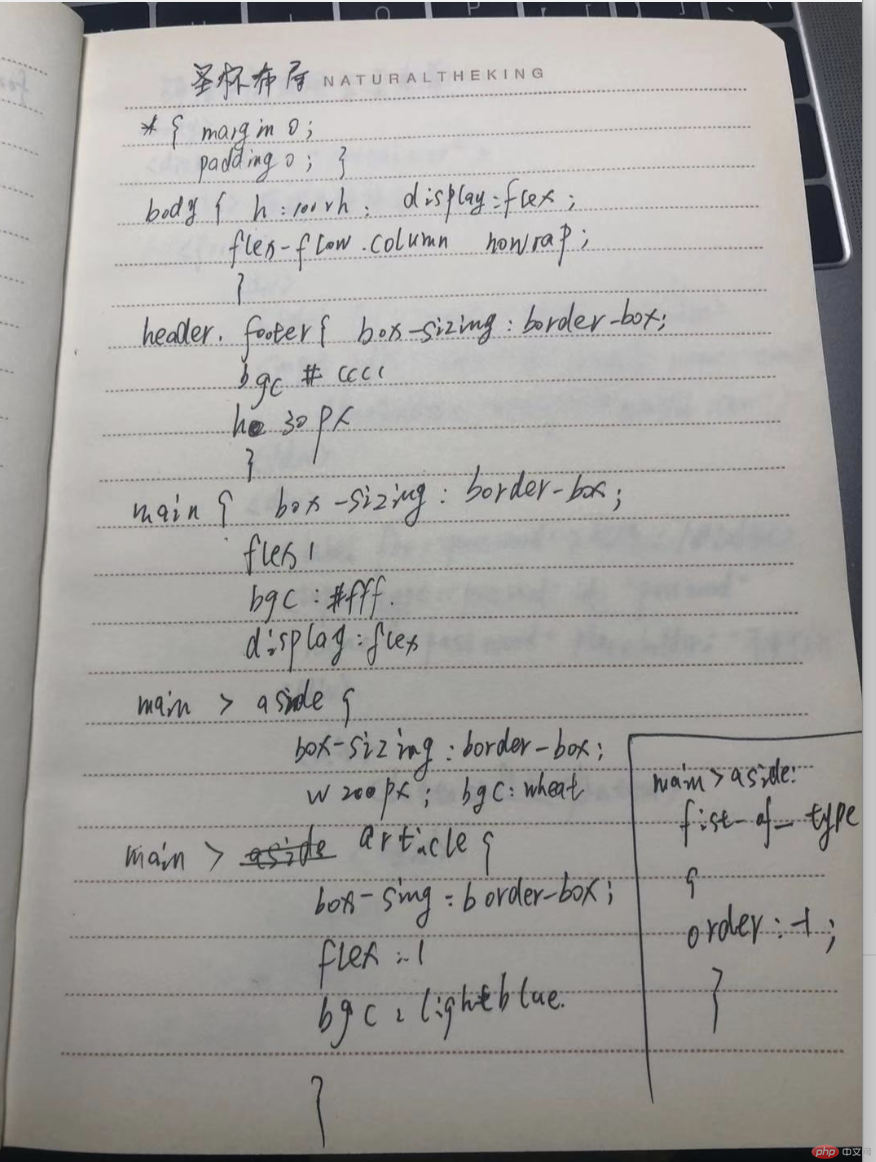 圣杯布局 NATURALTHEKING
* { margin 0;
padding 0; }
body { h:100vh; display:flex;
flex-flow.column nowrap;
}
header. footer{ box-sizing:border-box;
bgc #ccc
h 30px
}
main { box-sizing: border-box;
flex 1
bgc:#fff.
display:flex
main > aside {
box-sizing:border-box;
w 200px; bgc:wheat
main > aside article {
box-sing:border-box;
flex:1
bgc:lightblue.
}
main>aside:
fist-of-type
{
order:-1;
}
php 中文网